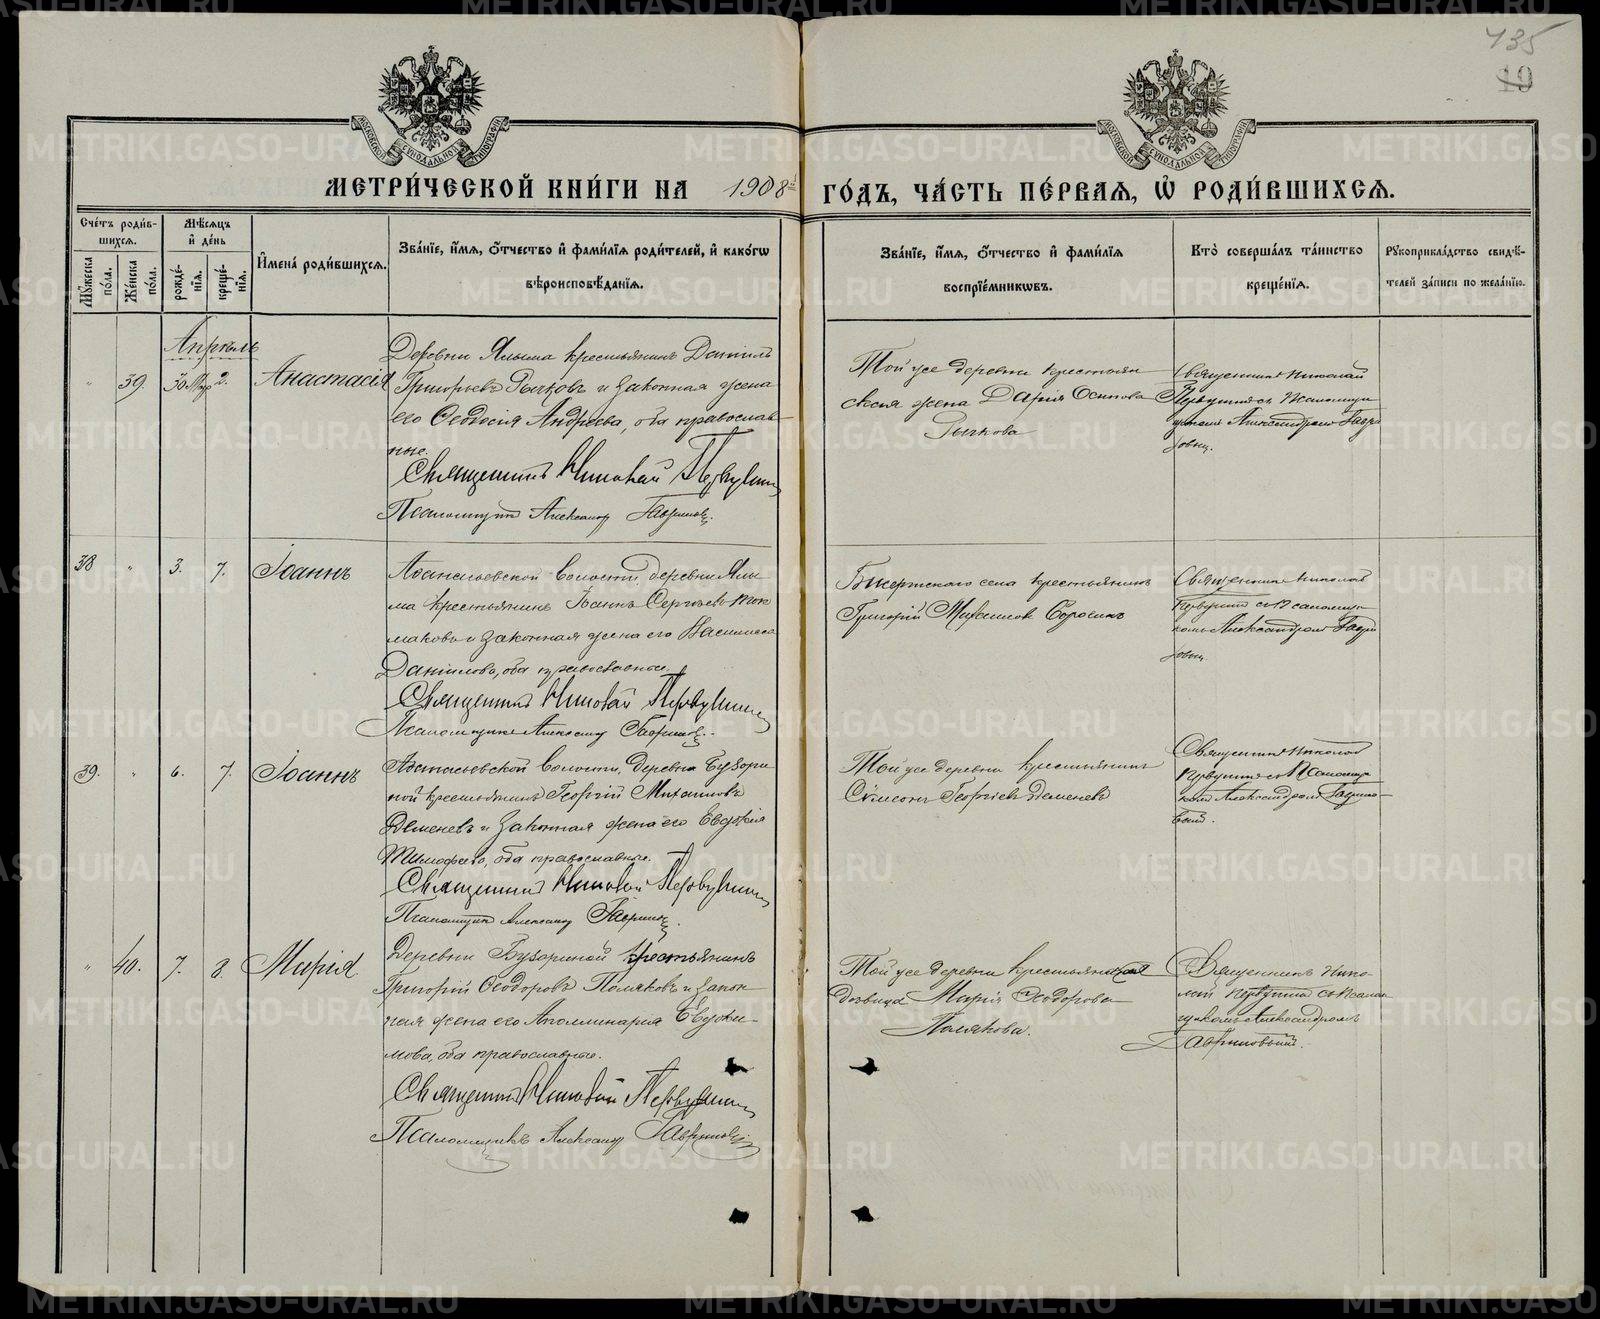 435
19
МЕТРИ́ЧЕСКОЙ КНИ́ГИ НА 1908 й ГО́ДЪ, ЧА́СТЬ ПЕ́РВАѦ, Ѡ҆ РОДИ́ВШИХСѦ.
Сче́тъ роди́в-
шихсѧ.
Мѣ́сѧцъ
и҆ де́нь
Мꙋ́жеска по́ла.
Же́нска по́ла.
рожде́-
нїѧ.
креще́-
нїѧ.
И҆мена̀ роди́вшихсѧ.
Зва́нїе, и҆́мѧ, ѻ҆́тчество и҆ фами́лїѧ роди́телей, и҆ како́гѡ
вѣроисповѣ́данїѧ.
Зва́нїе, и҆́мѧ, ѻ҆́тчество и҆ фами́лїѧ
воспрїе́мникѡвъ.
Кто̀ соверша́лъ та́инство
креще́нїѧ.
Рꙋкоприкла́дство свидѣ́-
телей за́писи по жела́нїю.
Апрѣль
" 39. 30 Мар 2. Анастасія
Деревни Ялыма крестьянинъ Даніилъ
Григорьевъ Рычковъ и законная жена
его Ѳеодосія Андреева, оба православ-
ные.
Священникъ Николай Первушинъ
Псаломщикъ Александръ
Той же деревни крестьян
ская жена Дарія Осипова
Рычкова
Священникъ Николай
Первушинъ съ псаломщи
комъ Александромъ
38 " 3. 7. Іоаннъ
волости, деревни Ялы-
ма крестьянинъ Іоаннъ Сергѣевъ Кол
маковъ и законная жена его Васса
Данилова, оба православные.
Священникъ Николай Первушинъ
Псаломщикъ Александръ
села крестьянинъ
Григорій Михаиловъ Сорокинъ
Священникъ Николай
Первушинъ съ псаломщи
комъ Александромъ
39. " 6. 7. Іоаннъ
волости, деревни Бузори
ной крестьянинъ Георгій Михаиловъ
Деменевъ и законная жена его Евдокія
Тимофеева, оба православные.
Священникъ Николай Первушинъ
Псаломщикъ Александръ
Той же деревни крестьянинъ
Сѵмеонъ Георгіевъ Деменевъ
Священникъ Николай
Первушинъ съ Псаломщи
комъ Александромъ
" 40. 7. 8. Марія
Деревни Бузориной крестьянинъ
Григорій Ѳеодоровъ Поляковъ и закон-
ная жена его Аполлинарія Евдоки-
мова, оба православные.
Священникъ Николай Первушинъ
Псаломщикъ Александръ
Той же деревни крестьянская
дѣвица Марія Ѳеодорова
Полякова.
Священникъ Нико-
лай Первушинъ съ псалом
щикомъ Александромъ
METRIKI.GASO-URAL.RU